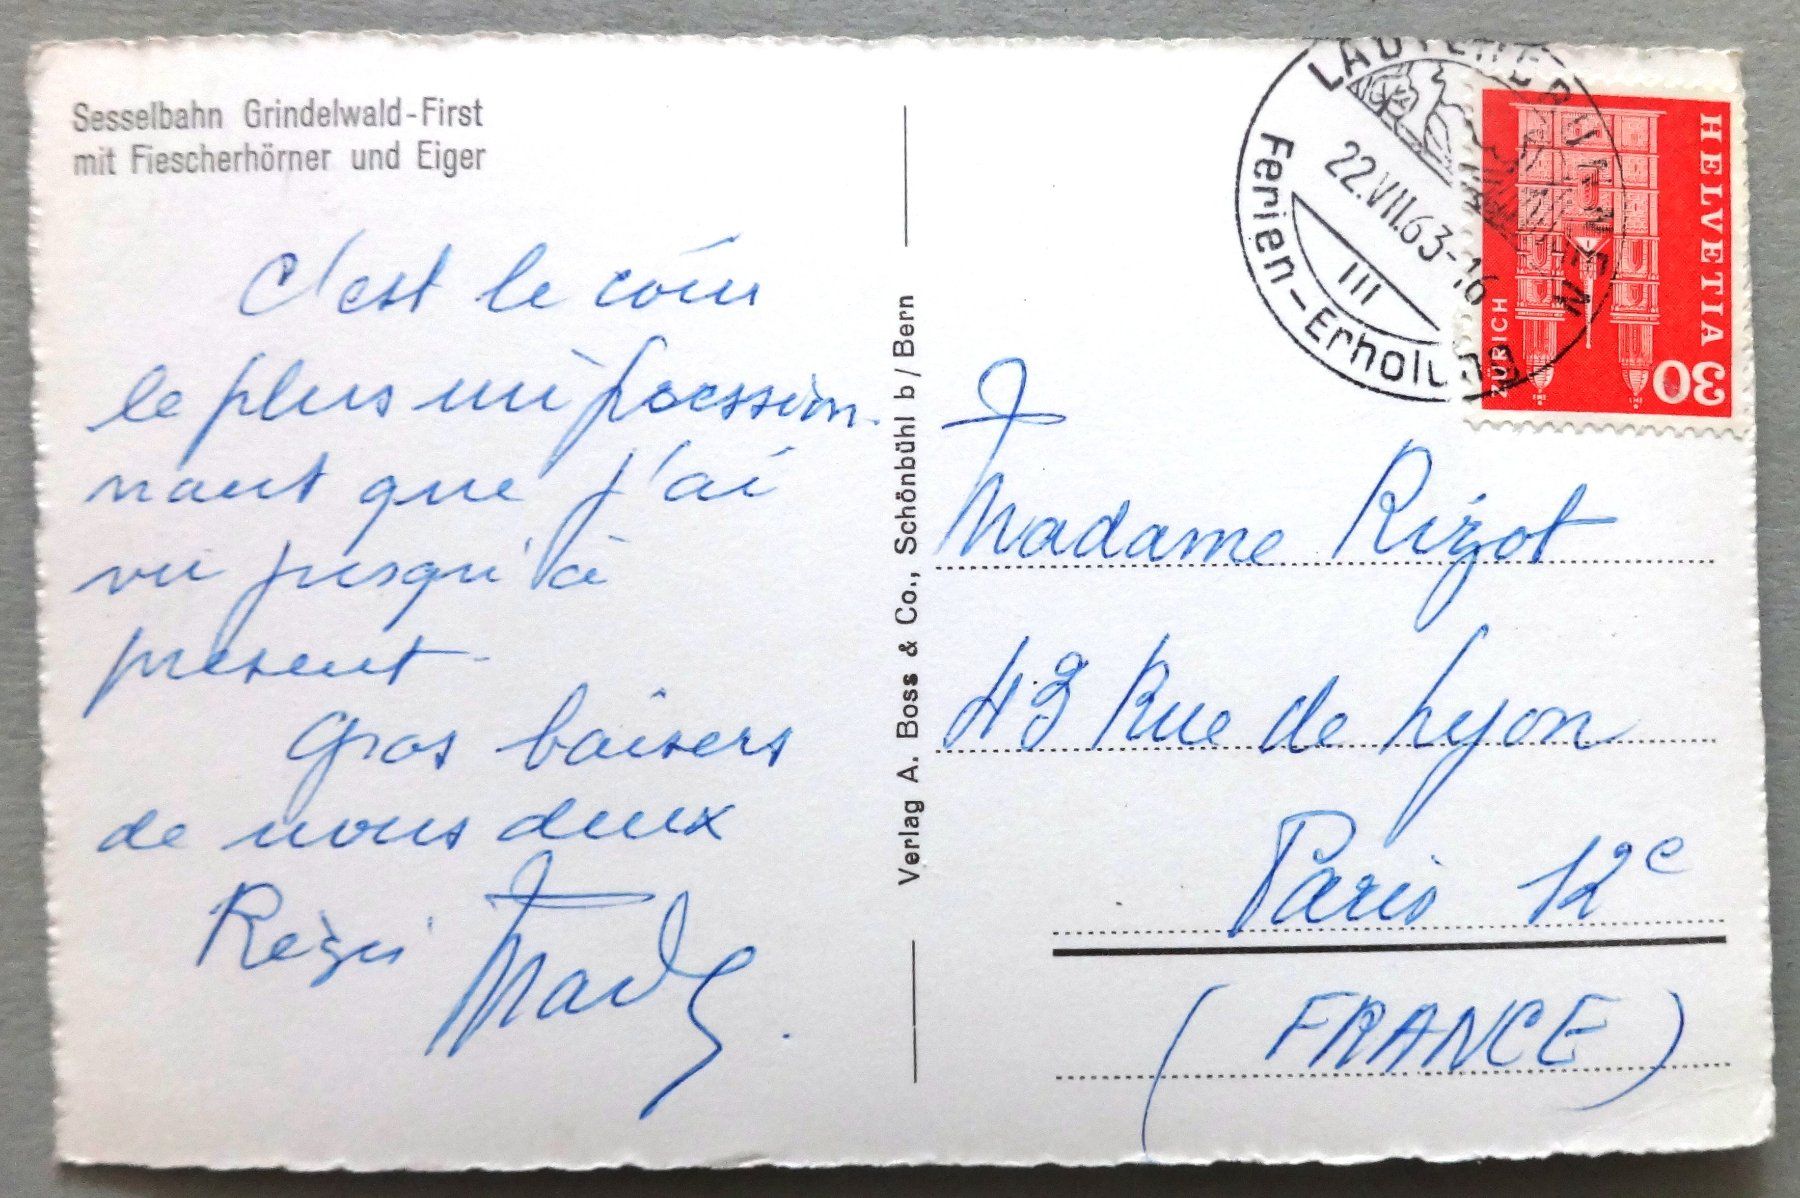 Sesselbahn Grindelwald-First
mit Fiescherhörner und Eiger
c'est le coin
le plus impression-
nant que j'ai
vu jusqu'à
présent.
Gros baisers
de nous deux
Régis
Verlag A. Boss & Co., Schönbühl b/Bern
LAUTERBRUNNEN
22.VII.63-16
III
Ferien-Erholung
HELVETIA 30
ZÜRICH
Madame Rizot
43 Rue de Lyon
Paris 12e
(FRANCE)